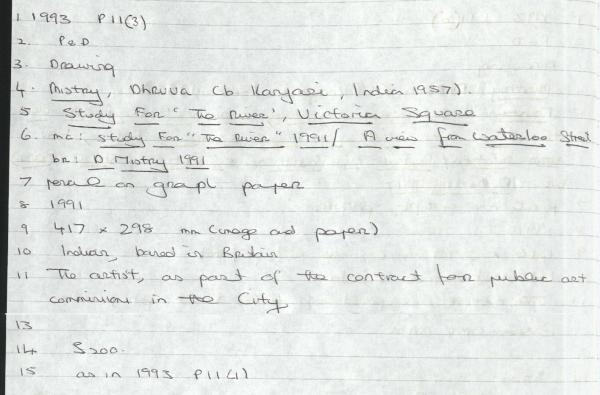 1 1993 P11(3)
2. P&D
3. Drawing
4. Mistry, Dhruva (b Kanjari, India 1957).
5 Study For 'The River', Victoria Square
6. mc: study For "The River" 1991/ A view from Waterloo Street
br: D Mistry 1991
7 pencil on graph paper
8 1991
9 417 x 298 mm (image and paper)
10 Indian, based in Britain
11 The artist, as part of the contract for public art
commissions in the City
13
14 S200.
15 as in 1993 P11(1)